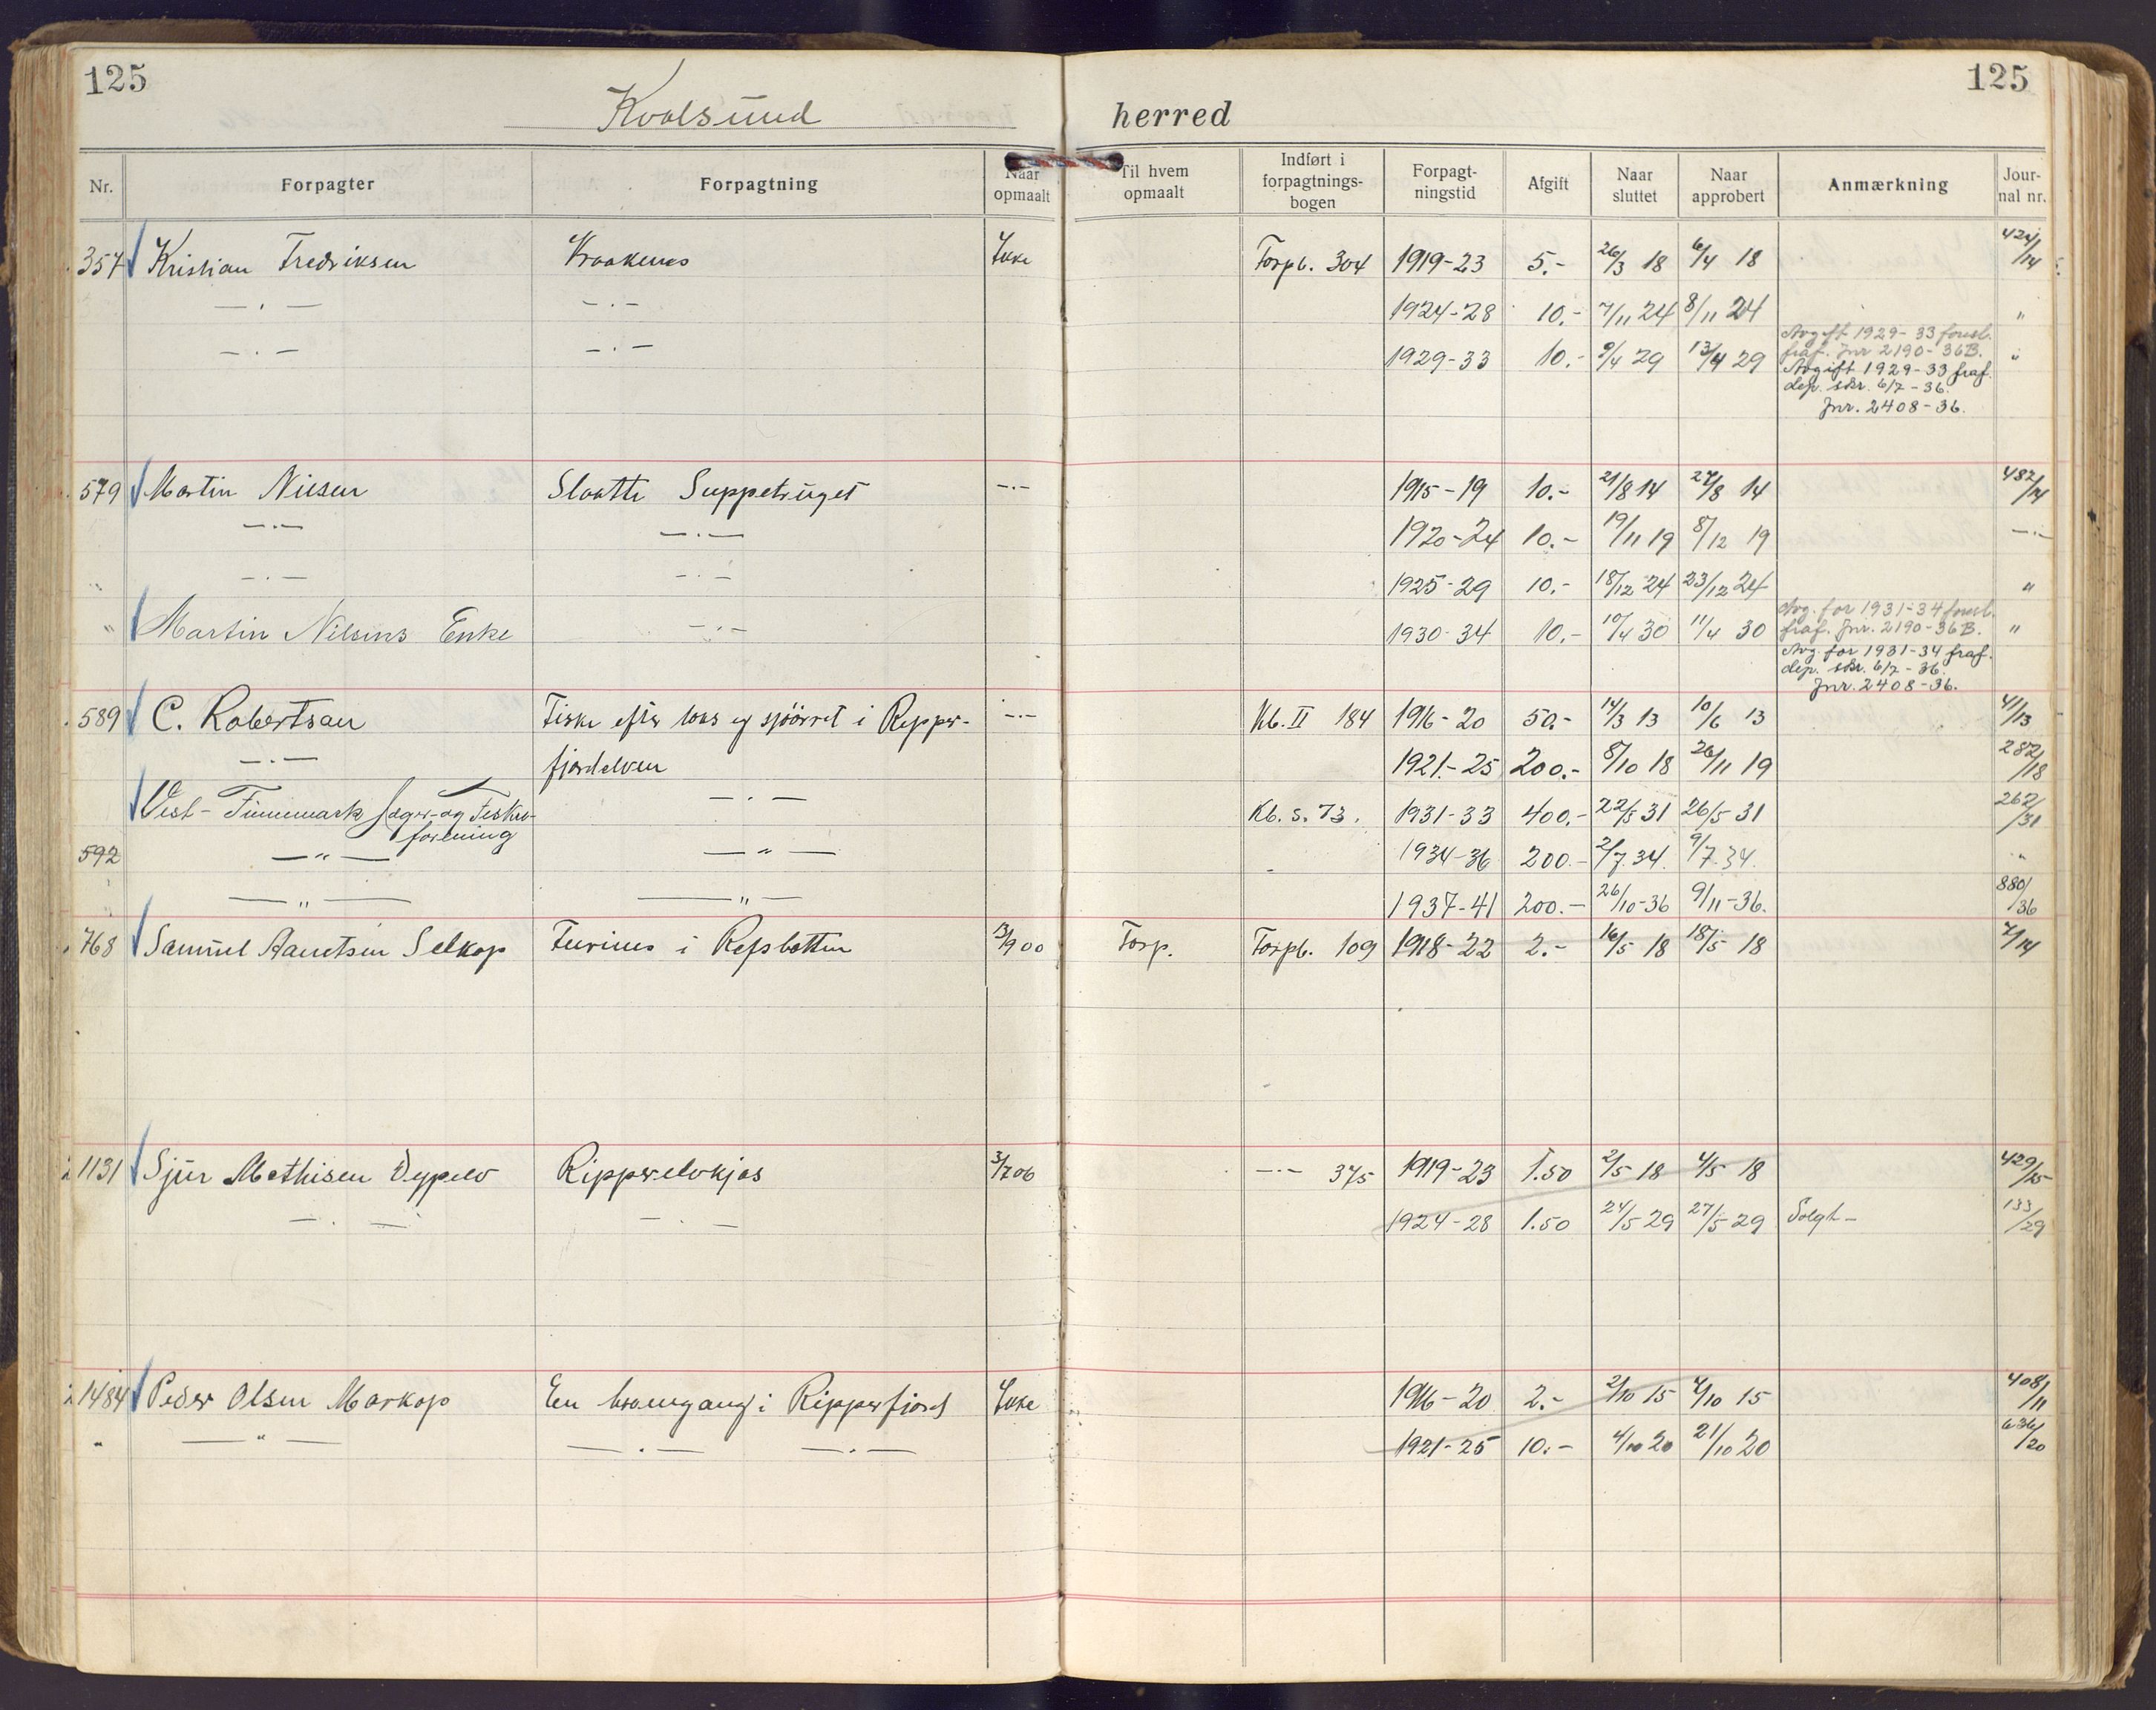 125
125
Kvalsund herred
Nr. Forpagter Forpagtning Naar opmaalt Til hvem opmaalt Indført i forpagtnings-bogen Forpagt-ningstid Afgift Naar sluttet Naar approbert Anmærkning Jour-nal nr.
357 Kristian Fredriksen Kraakenes Ikke Forpb. 304 1919-23 5.- 26/3 18 6/4 18 424/14
—.— —.— 1924-28 10.- 7/11 24 8/11 24 "
Avgift 1929-33 foresl.
fraf. Jnr 2190-36B.
—.— —.— 1929-33 10.- 9/4 29 13/4 29 "
Avgift 1929-33 fraf.
dep. skr. 6/7-36.
Jnr. 2408-36.
579 Martin Nilsen Slaatte Suppetruget —.— 1915-19 10.- 21/8 14 27/8 14 482/14
—.— —.— 1920-24 10.- 19/11 19 8/12 19 —.—
—.— —.— 1925-29 10.- 18/12 24 23/12 24 "
Avg. for 1931-34 foresl.
" Martin Nilsens Enke —.— 1930-34 10.- 10/4 30 11/4 30 fraf. Jnr. 2190-36B. "
Avg. for 1931-34 fraf.
dep. skr. 6/7-36.
Jnr. 2408-36.
589 C. Robertsan Fiske efter laks og sjöörret i Repper- —.— Kb. II 184 1916-20 50.- 14/3 13 10/6 13 41/13
—.— fjordelven 1921-25 200.- 8/10 18 26/11 19 282/18
Vest-Finnmark Jæger- og Fisker- —.— Kb. s. 73. 1931-33 400.- 22/5 31 26/5 31 262/31
forening
592 —"— —"— 1934-36 200.- 2/7 34. 9/7 34. "
—"— —"— 1937-41 200.- 26/10-36 9/11-36. 880/36
768 Samuel Selkop i Refsbotten 13/9 00 Forp. Forpb. 109 1918-22 2.- 16/5 18 18/5 18 7/14
1131 Sjur Mathisen Ripperelvkjos 3/7 06 —.— 375 1919-23 1.50 2/5 18 4/5 18 429/25
—.— —.— 1924-28 1.50 24/5 29 27/5 29 Solgt- 133/29
1484 Peder Olsen Markop En i Ripperfjord Ikke 1916-20 2.- 2/10 15 4/10 15 408/11
" —"— —.— —.— 1921-25 10.- 4/10 20 21/10 20 636/20